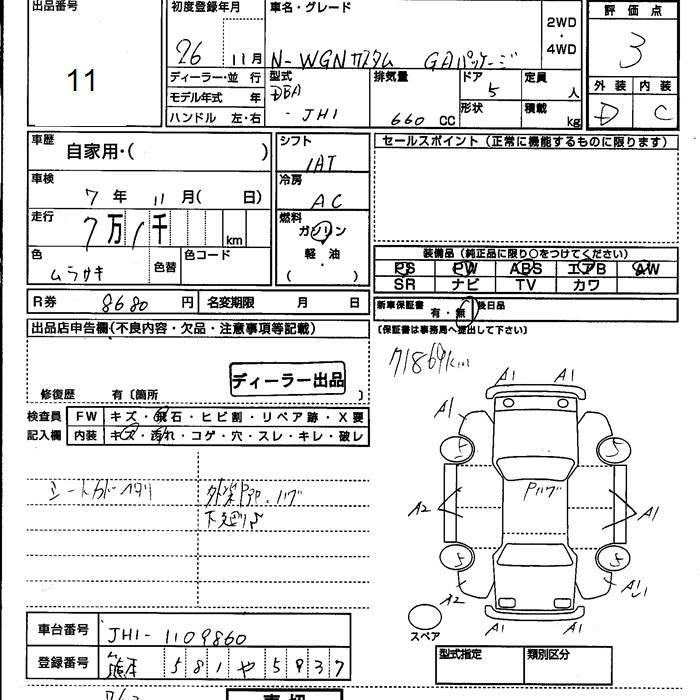 出品番号
11
初度登録年月
26 11月
車名・グレード
N-WGNカスタム GAパッケージ
2WD・4WD
評価点
3
外装 内装
D C
ディーラー・並行
モデル年式 年
ハンドル 左・右
型式
DBA
-JH1
排気量
660 CC
ドア
5
形状
定員
人
積載
kg
車歴
自家用・( )
車検
7年 11月( 日)
走行
7万1千 km
色
ムラサキ
色替
色コード
シフト
IAT
冷房
AC
燃料
ガソリン
軽・油
( )
セールスポイント(正常に機能するものに限ります)
装備品(純正品に限り○をつけてください)
PS PW ABS エアB AW
SR ナビ TV カワ
新車保証書
有・無
後日品
(保証書は事務局へ提出して下さい)
R券 8680円
名変期限 月 日
出品店申告欄(不良内容・欠品・注意事項等記載)
ディーラー出品
修復歴 有〔箇所
検査員
記入欄
FW キズ・飛石・ヒビ割・リペア跡・X要
内装 キズ・汚れ・コゲ・穴・スレ・キレ・破レ
71869km
A1 A1
A1
5 5
Pハゲ
A2 A1
5 5
A2 A1
A1 A1
スペア
車台番号 JH1-1109860
登録番号 熊本 581や5937
型式指定 類別区分